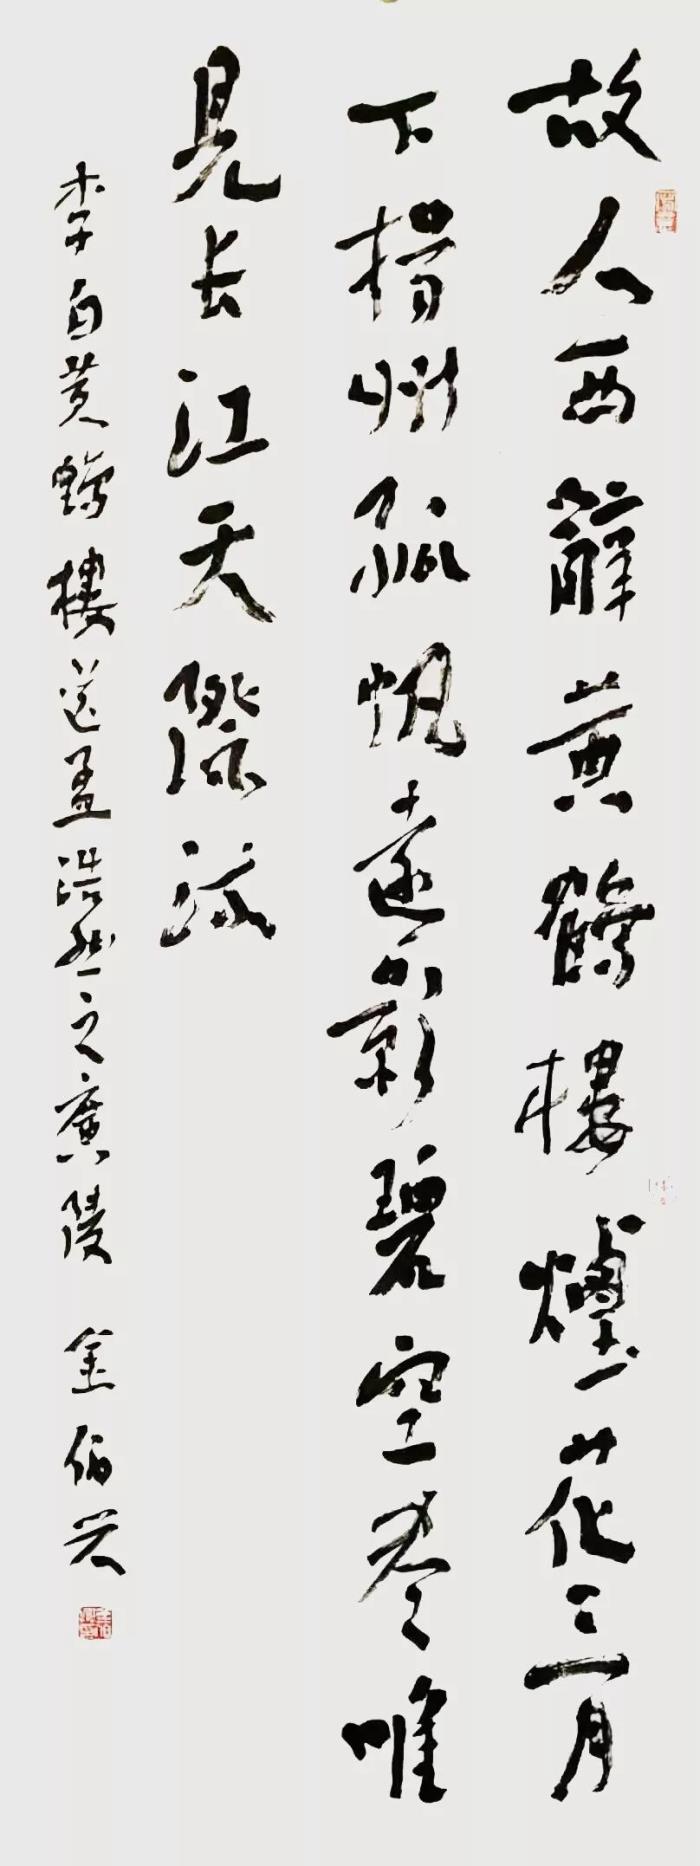 故人西辭黄鶴樓煙花三月
下揚州孤帆遠影碧空盡唯
見长江天際流
李白黄鶴樓送孟浩然之廣陵 金伯兴